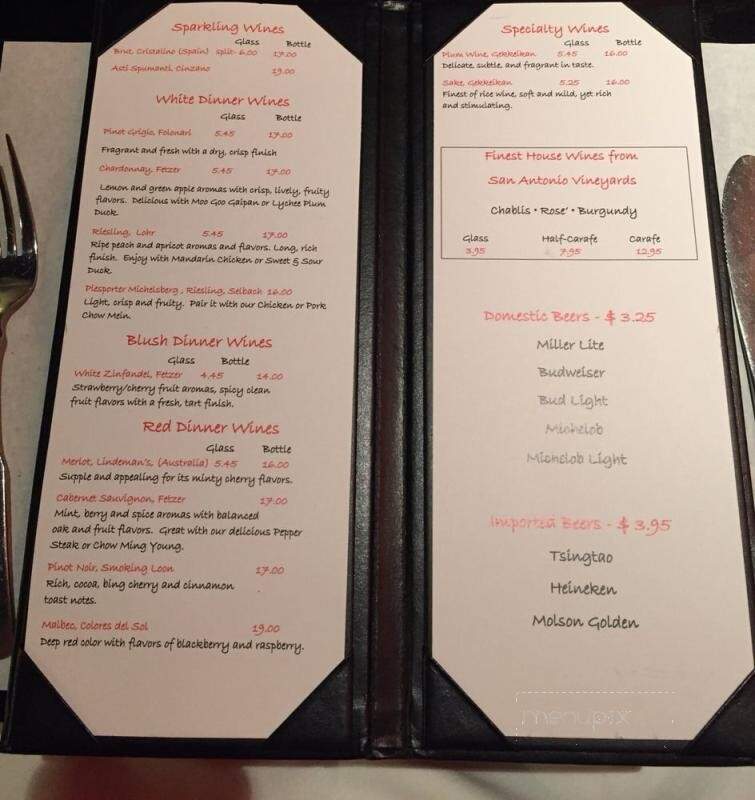 Sparkling Wines
Glass Bottle
Brut, Cristalino (Spain) split- 6.00 17.00
Asti Spumanti, Cinzano 19.00
White Dinner Wines
Glass Bottle
Pinot Grigio, Folonari 5.45 17.00
Fragrant and fresh with a dry, crisp finish
Chardonnay, Fetzer 5.45 17.00
Lemon and green apple aromas with crisp, lively, fruity
flavors. Delicious with Moo Goo Gaipan or Lychee Plum
Duck.
Riesling, Lohr 5.45 17.00
Ripe peach and apricot aromas and flavors. Long, rich
finish. Enjoy with Mandarin Chicken or Sweet & Sour
Duck.
Piesporter Michelsberg, Riesling, Selbach 16.00
Light, crisp and fruity. Pair it with our Chicken or Pork
Chow Mein.
Blush Dinner Wines
Glass Bottle
White Zinfandel, Fetzer 4.45 14.00
Strawberry/cherry fruit aromas, spicy clean
fruit flavors with a fresh, tart finish.
Red Dinner Wines
Glass Bottle
Merlot, Lindeman's, (Australia) 5.45 16.00
Supple and appealing for its minty cherry flavors.
Cabernet Sauvignon, Fetzer 17.00
Mint, berry and spice aromas with balanced
oak and fruit flavors. Great with our delicious Pepper
Steak or Chow Ming Young.
Pinot Noir, Smoking Loon 17.00
Rich, cocoa, bing cherry and cinnamon
toast notes.
Malbec, Colores del Sol 19.00
Deep red color with flavors of blackberry and raspberry.
Specialty Wines
Glass Bottle
Plum Wine, Gekkeikan 5.45 16.00
Delicate, subtle, and fragrant in taste.
Sake, Gekkeikan 5.25 16.00
Finest of rice wine, soft and mild, yet rich
and stimulating.
Finest House Wines from
San Antonio Vineyards
Chablis • Rose' • Burgundy
Glass Half-Carafe Carafe
3.95 7.95 12.95
Domestic Beers - $ 3.25
Miller Lite
Budweiser
Bud Light
Michelob
Michelob Light
Imported Beers - $ 3.95
Tsingtao
Heineken
Molson Golden
menupix